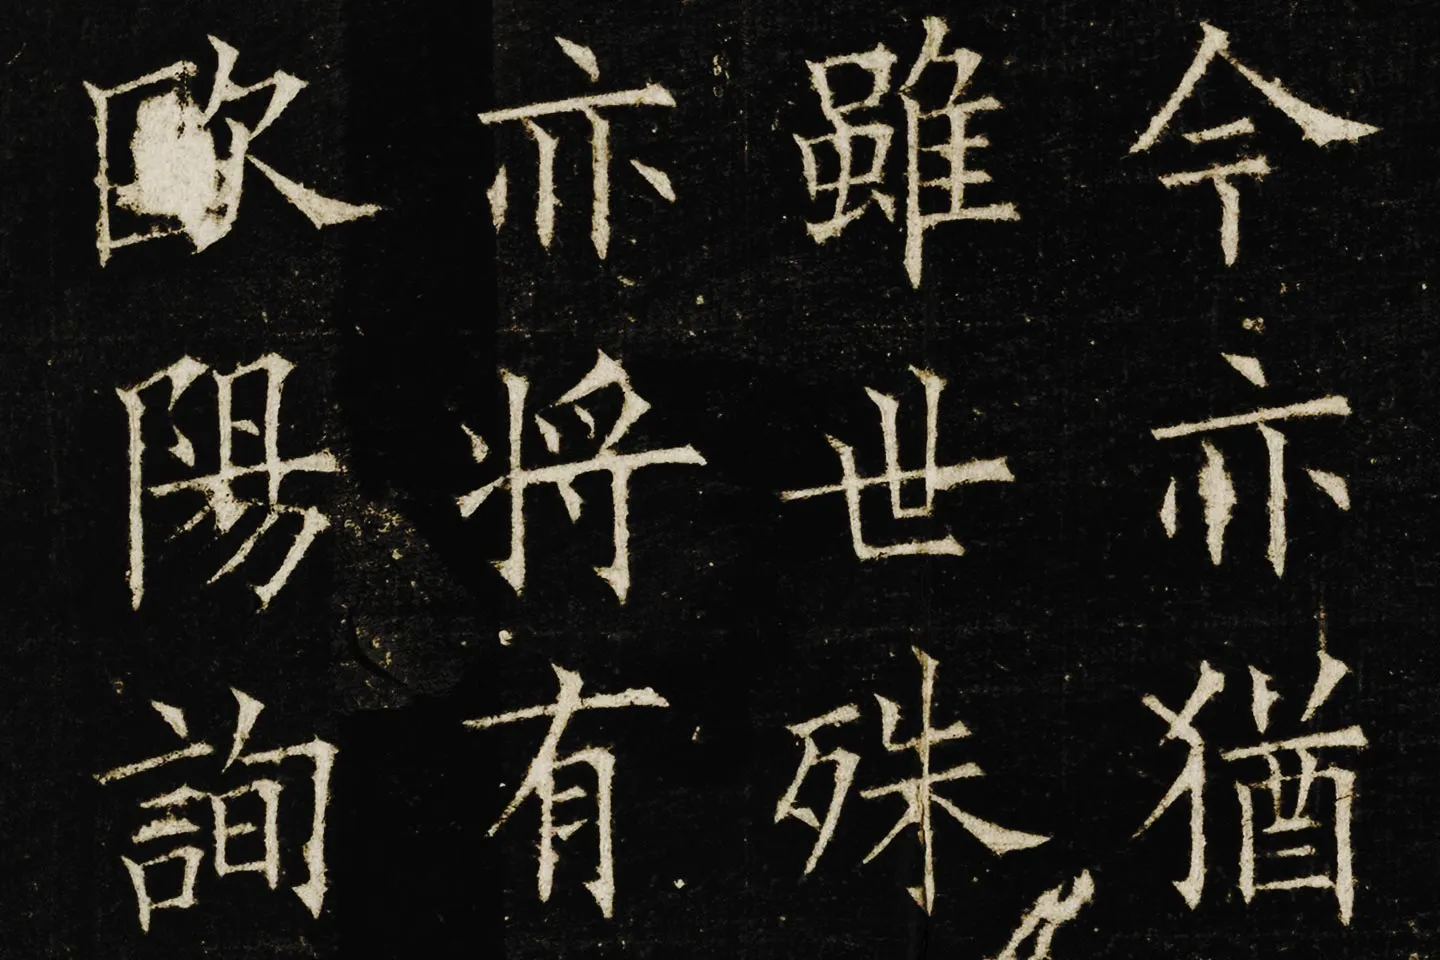 今亦猶
雖世殊
亦將有
歐陽詢